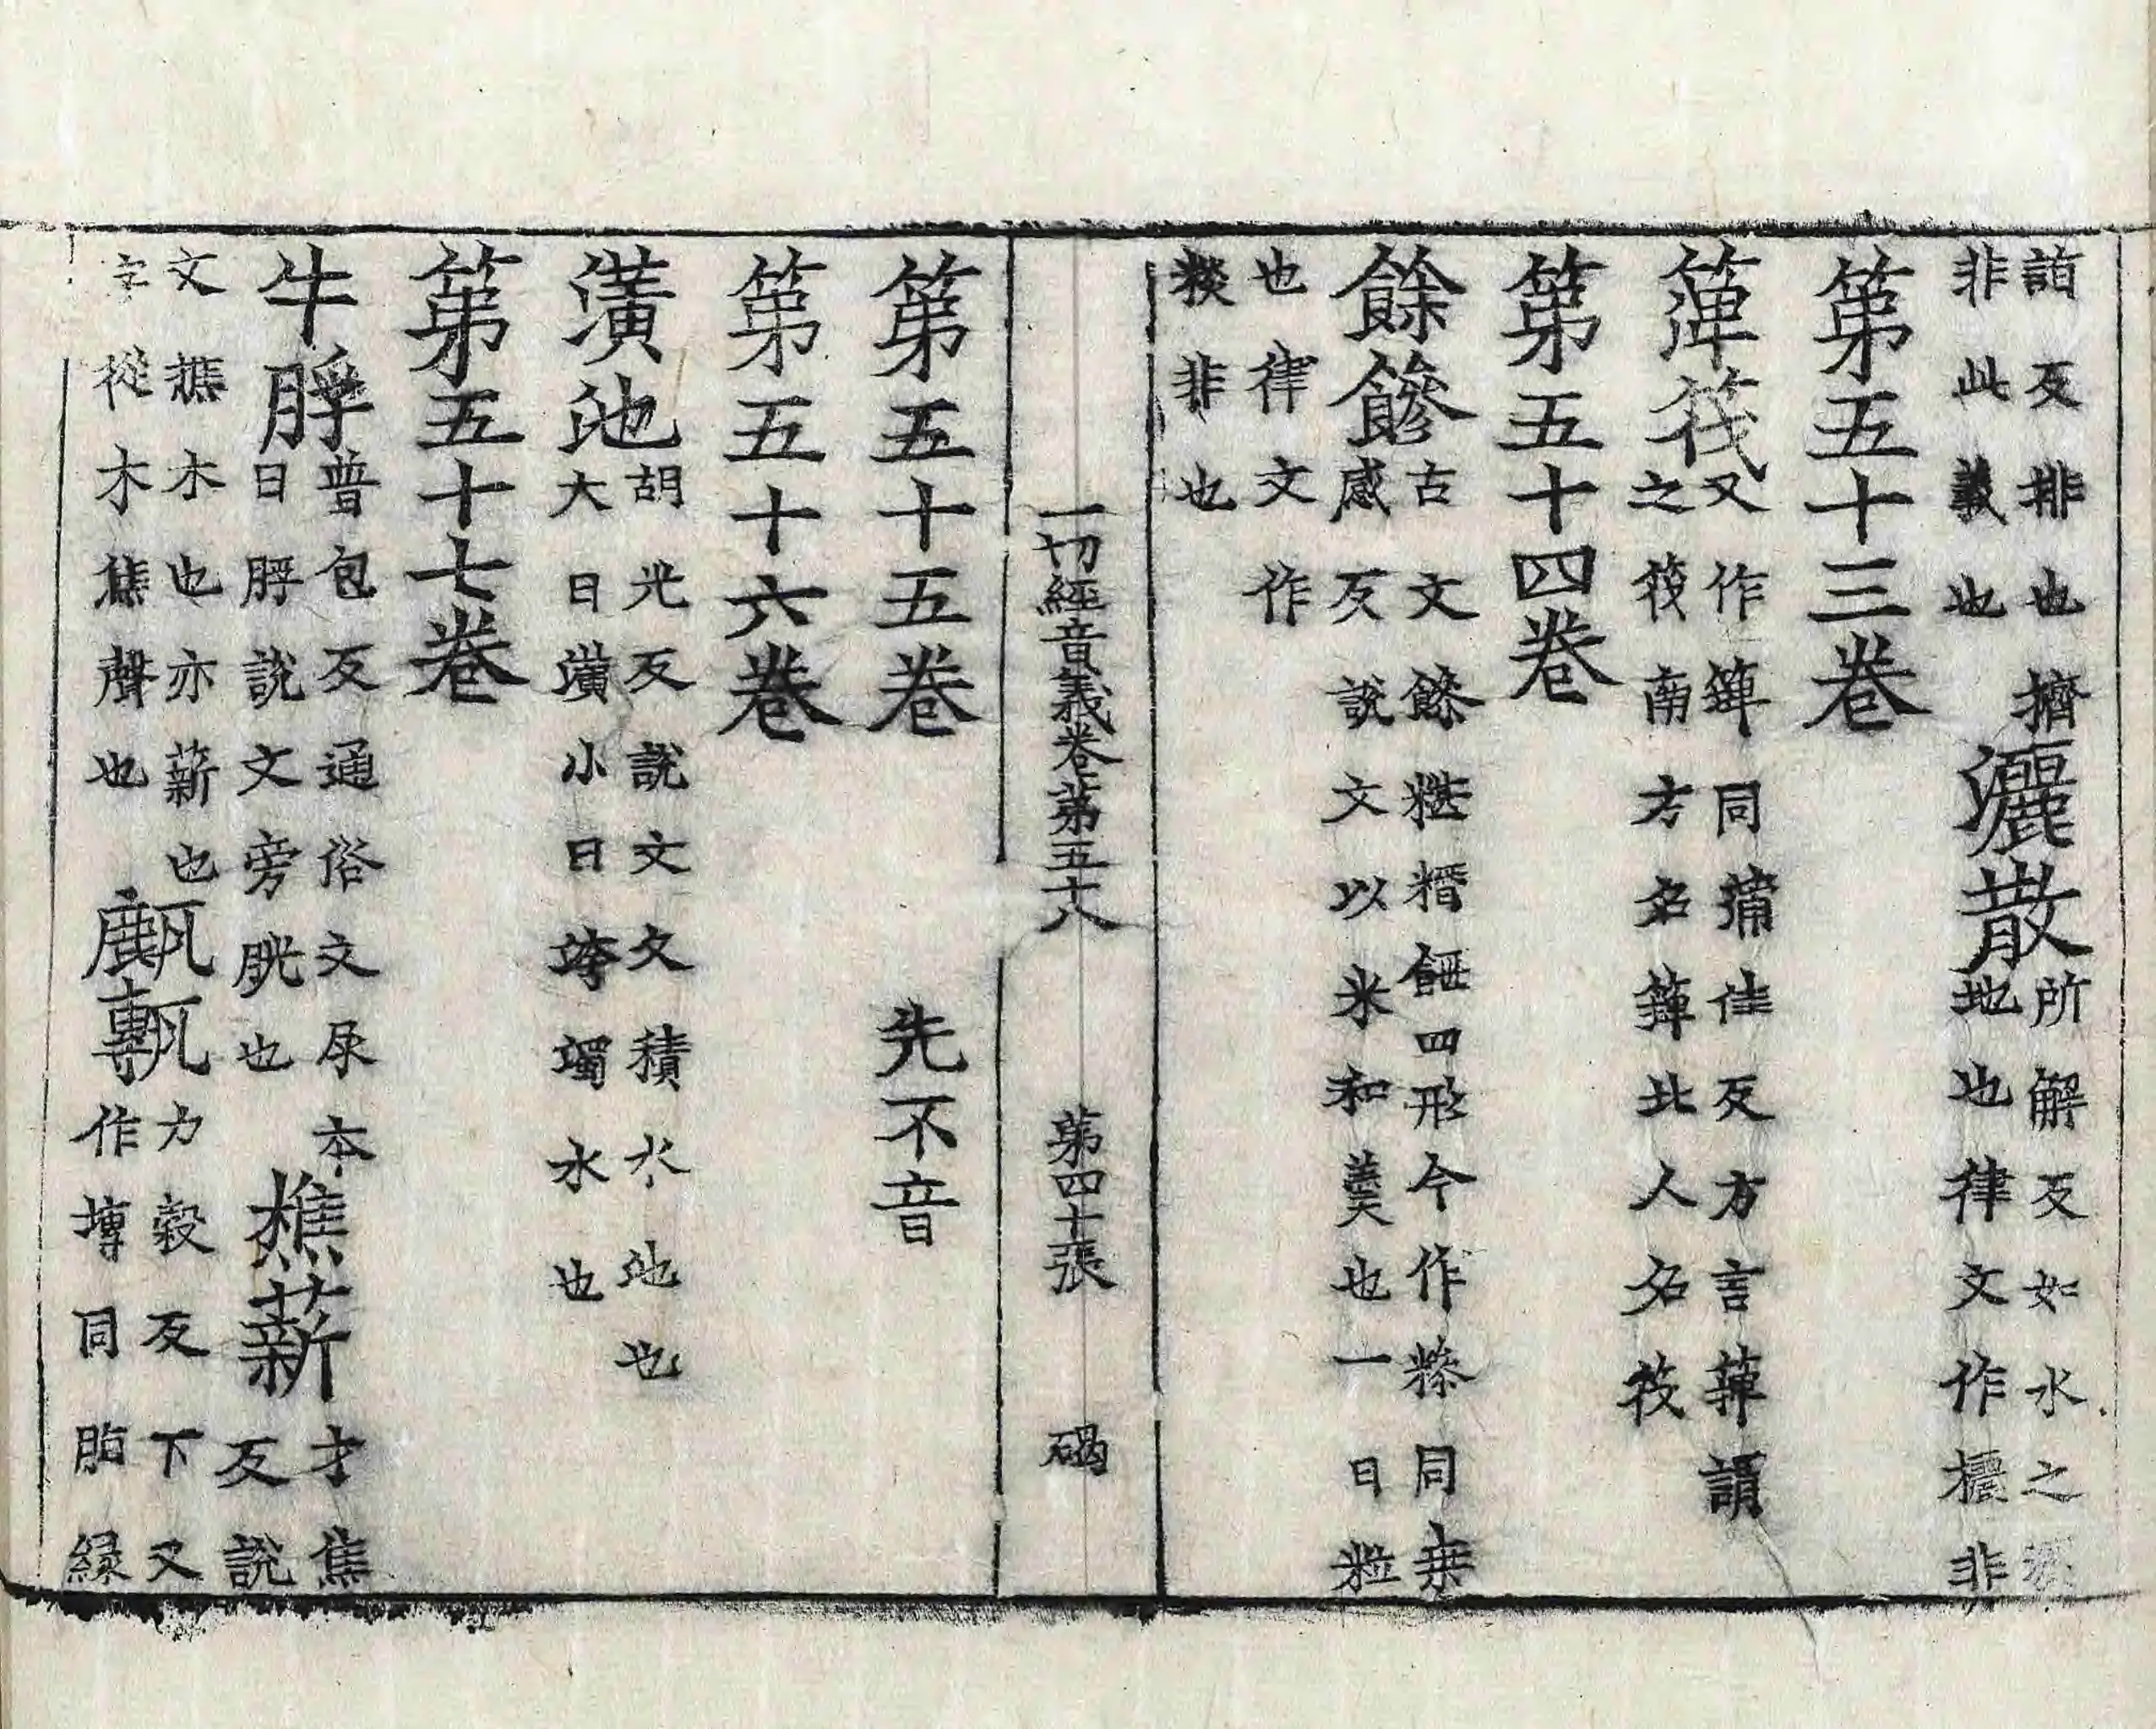 詣反排也擠
非此義也
灑散
所解反如水之
地也律文作攦非
第五十三卷
箄筏
又作簰同蒲佳反方言箄謂
之筏南方名簰北人名筏
第五十四卷
餘䭃
古文餘糂糣䭃四形今作糝同桒
感反說文以米和羹也一曰粒
也律文作
糉非也
一切經音義卷第五十八 第四十張 碣
第五十五卷 先不音
第五十六卷
潢池
胡光反說文文積水池也
大曰潢小曰洿濁水也
第五十七卷
牛脬
普包反通俗文尿本
曰脬說文旁胱也
樵薪
才焦
反說
文樵木也亦薪也
字從木焦聲也
甋甎
力穀反下又
作塼同脂緣